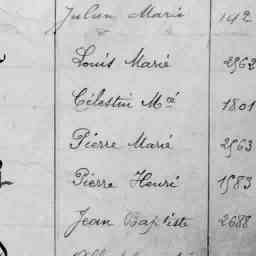 Julien Marie 142
Louis Marié 2962
Célestin Mié 1801
Pierre Marié 2963
Pierre Henri 1983
Jean Baptiste 2688